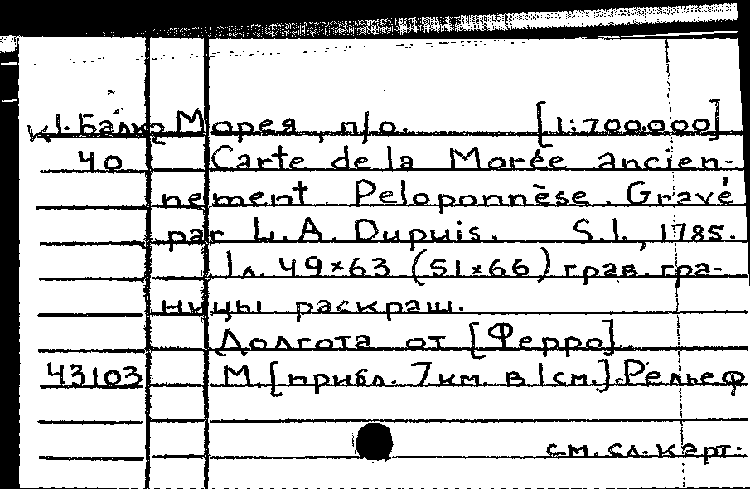 К 1. Балк. Морея, п/о. [1:700.000]
40 Carte de la Morée ancien-
nement Peloponnèse. Gravé
par L.A. Dupuis. S.l., 1785.
1 л. 49×63 (51×66) грав. гра-
ницы раскраш.
Долгота от [Ферро]
43103 М. [прибл. 7 км. в 1 см.]. Рельеф
см. сл. карт.